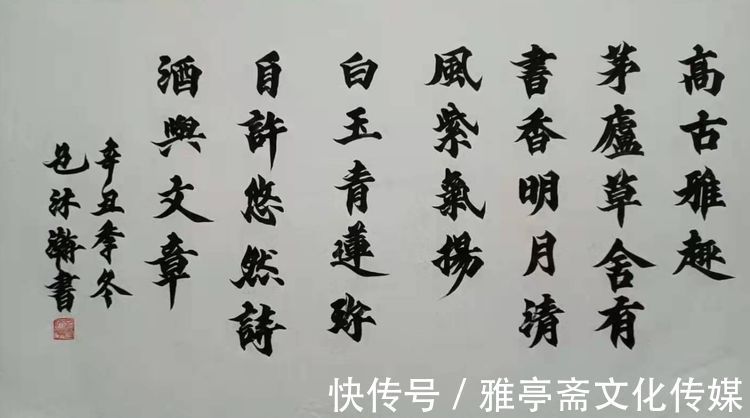 高古雅趣
茅廬草舍有
書香明月清
風紫氣揚
白玉青蓮珎
自許悠然詩
酒與文章
辛丑季冬
沐瀚書
快传号 / 雅亭斋文化传媒